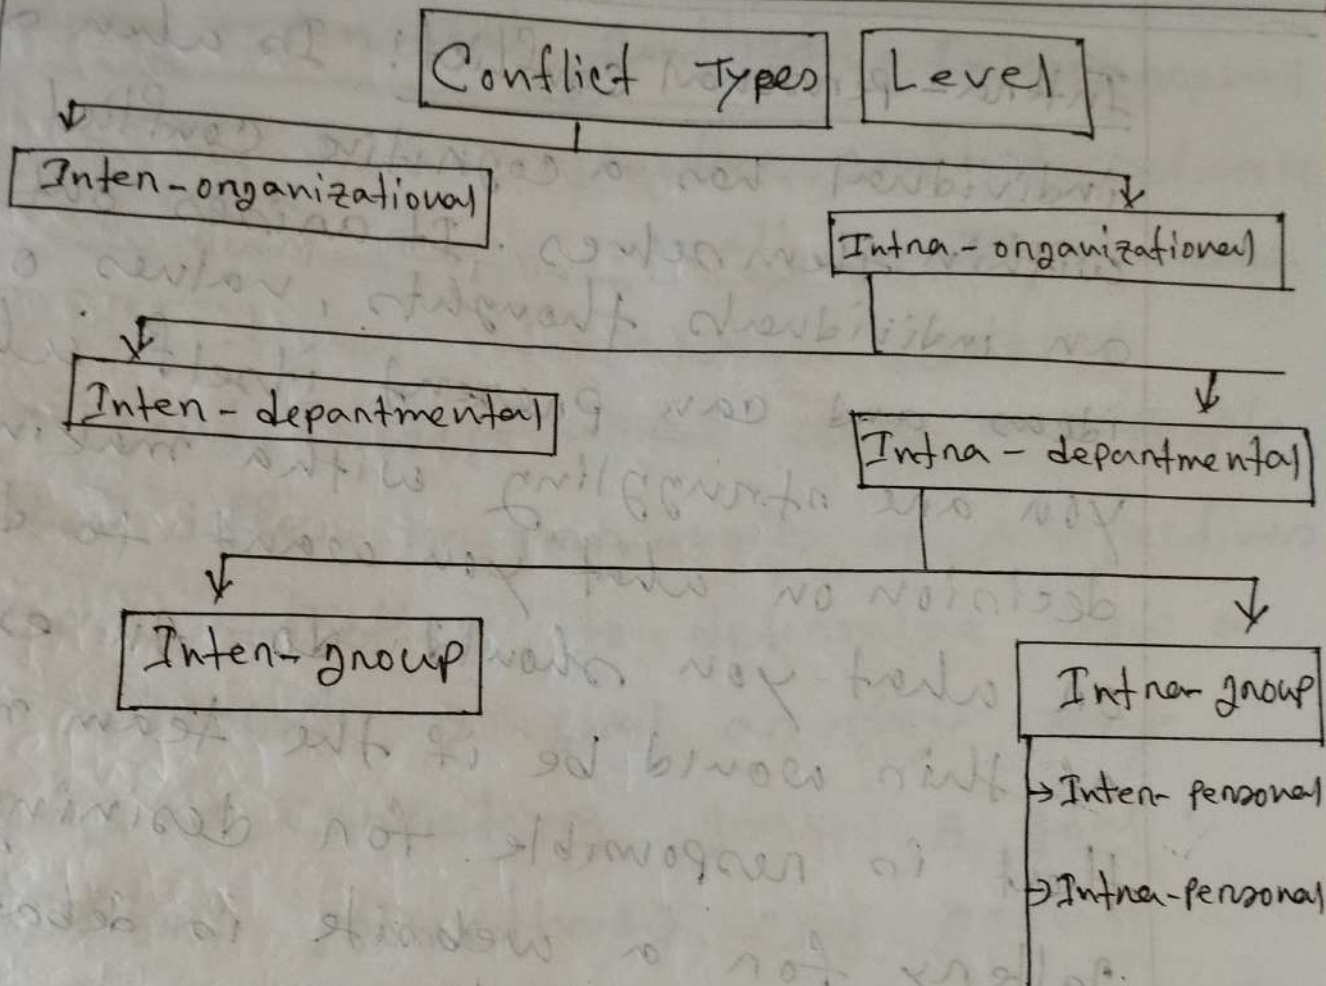 Conflict Types Level
Inter-organizational
Intra-organizational
Inter-departmental
Intra-departmental
Inter-group
Intra-group
Inter-personal
Intra-personal